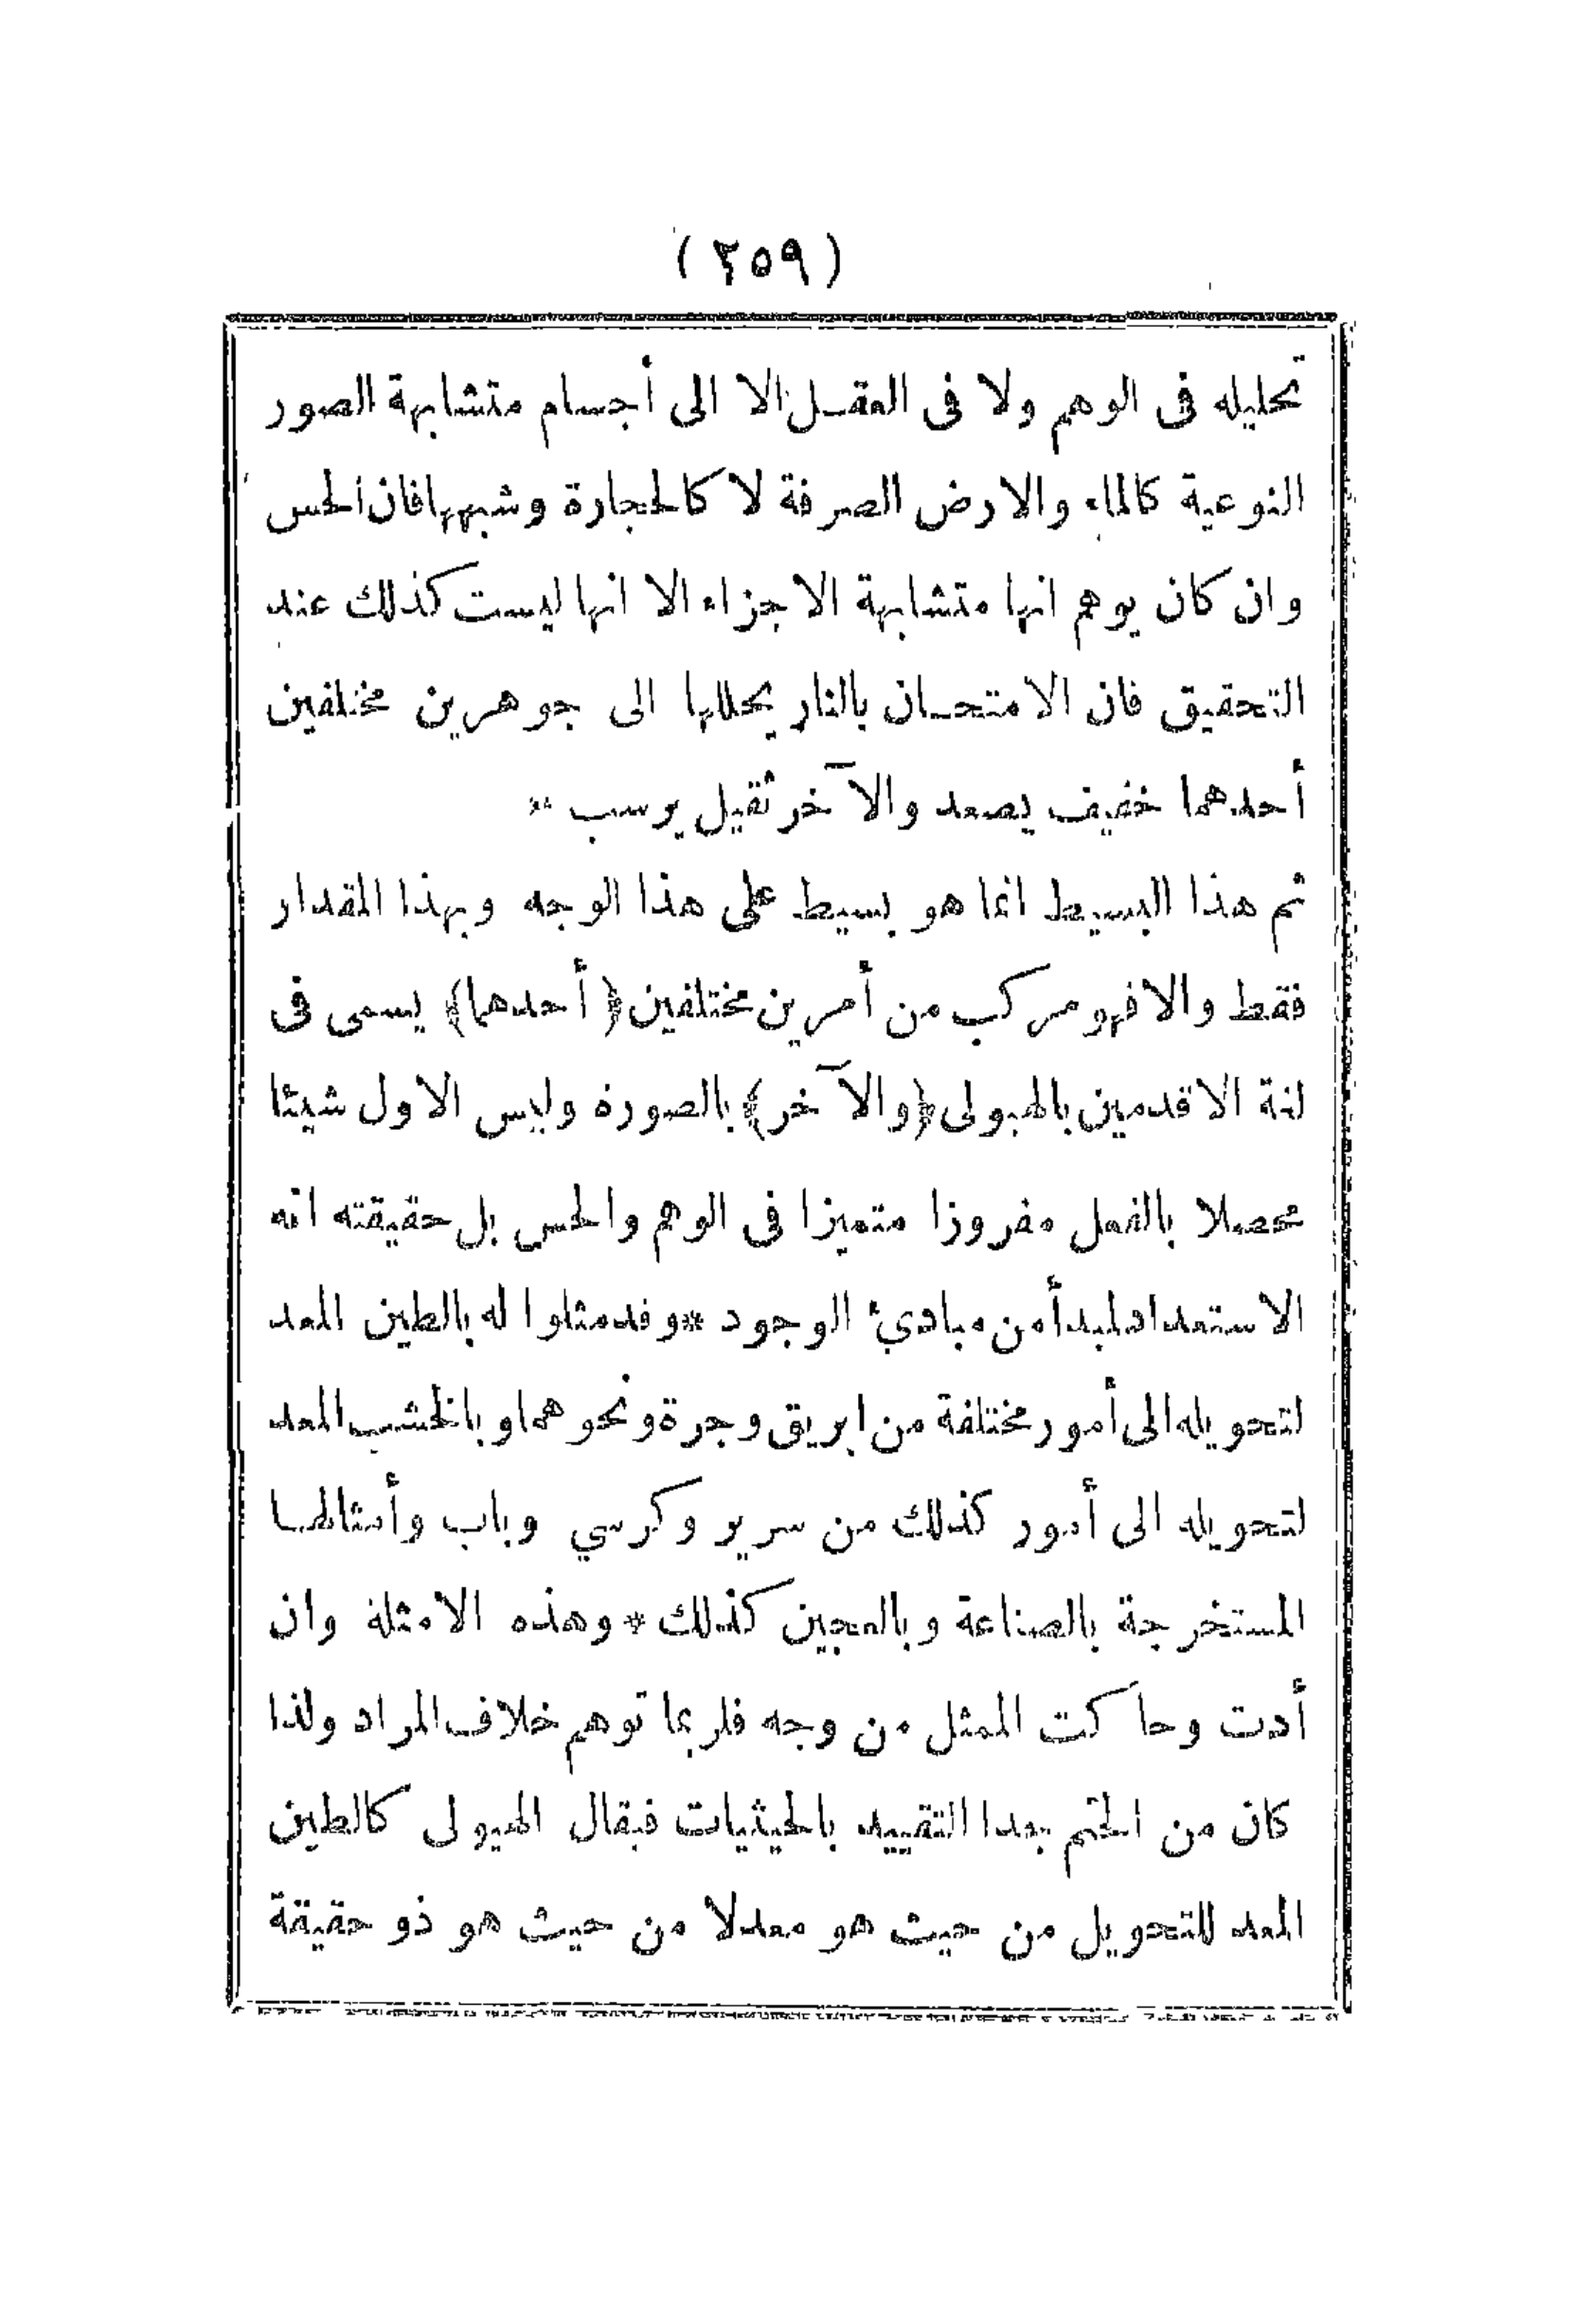 (٢٥٩)
تحليله فى الوهم ولا فى العقل الا الى أجسام متشابهة الصور
النوعية كالماء والارض الصرفة لا كالحجارة وشبهها فان الحس
وان كان يوهم انها متشابهة الاجزاء الا انها ليست كذلك عند
التحقيق فان الامتحان بالنار يحللها الى جوهرين مختلفين
أحدهما خفيف يصعد والآخر ثقيل يرسب *
ثم هذا البسيط انما هو بسيط على هذا الوجه وبهذا المقدار
فقط والا فهو مركب من أمرين مختلفين ﴿أحدهما﴾ يسمى فى
لغة الاقدمين بالهيولى ﴿والآخر﴾ بالصورة وليس الاول شيئا
محصلا بالفعل مفروزا متميزا فى الوهم والحس بل حقيقته انه
الاستعداد لمبدأ من مبادئ الوجود * وقد مثلوا له بالطين المعد
لتحويله الى أمور مختلفة من ابريق وجرة ونحوهما وبالخشب المعد
لتحويله الى أمور كذلك من سرير وكرسي وباب وأمثالها
المستخرجة بالصناعة وبالعجين كذلك * وهذه الامثلة وان
أدت وحاكت الممثل من وجه فلربما توهم خلاف المراد ولذا
كان من الحتم بعدا التقييد بالحيثيات فيقال الهيولى كالطين
المعد للتحويل من حيث هو معد لا من حيث هو ذو حقيقة